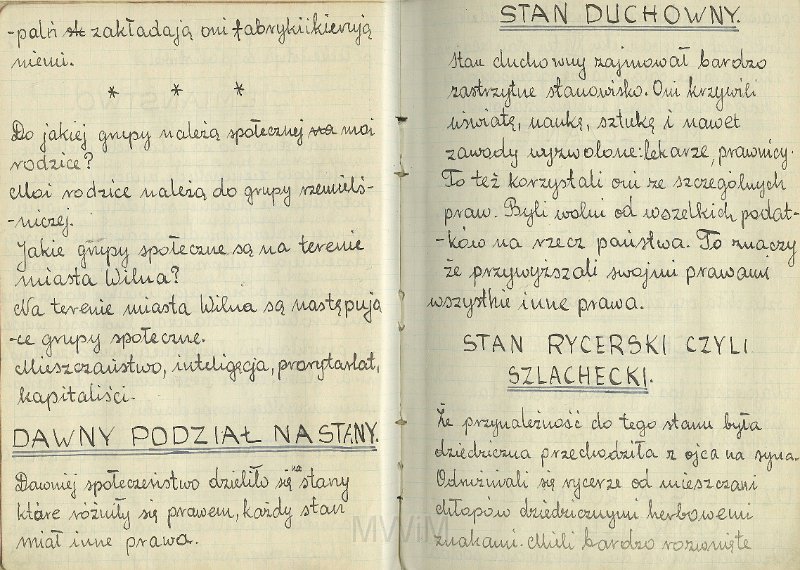 -palń zakładają oni fabryki i kierują
niemi.
* * *
Do jakiej grupy należą społecznej moi
rodzice?
Moi rodzice należą do grupy rzemieś-
-niczej.
Jakie grupy społeczne są na terenie
miasta Wilna?
Na terenie miasta Wilna są następują
-ce grupy społeczne.
Mieszczaństwo, inteligęcja, prorytarlat,
kapitaliści.
DAWNY PODZIAŁ NA STANY.
Dawniej społeczeństwo dzieliło się na stany
które różniły się prawem, każdy stan
miał inne prawa.
STAN DUCHOWNY.
Stan duchowny zajmował bardzo
zastrzytne stanowisko. Oni krzywili
uświatę, naukę, sztukę i nawet
zawody wyzwolone: lekarze, prawnicy.
To też korzystali oni ze szczególnych
praw. Byli wolni od wszelkich podat-
-ków na rzecz państwa. To znaczy
że przywyższali swojmi prawami
wszystkie inne prawa.
STAN RYCERSKI CZYLI
SZLACHECKI.
Że przynależność do tego stanu była
dziedziczna przechodziła z ojca na syna.
Odróżniali się rycerze od mieszczan i
chłopów dziedzicznymi herbowemi
znakami. Mieli bardzo rozwinięte
MWiM